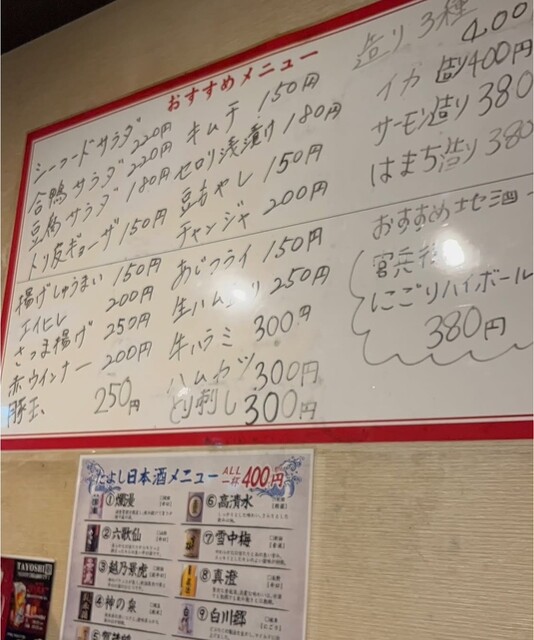 おすすめメニュー
シーフードサラダ 220円
合鴨サラダ 220円
豆腐サラダ 180円
トリ皮ギョーザ 150円
キムチ 150円
セロリ浅漬け 180円
豆もやし 150円
チャンジャ 200円
造り3種
400
イカ造り 400円
サーモン造り 380
はまち造り 380
揚げしゅうまい 150円
エイヒレ 200円
さつま揚げ 250円
赤ウインナー 200円
豚玉 250円
あじフライ 150円
生ハム 250円
牛ハラミ 300円
ハムカツ 300円
とり刺し 300円
おすすめ地酒
にごりハイボール
380円
たよし日本酒メニュー ALL一杯400円
①爛漫
②六歌仙
③越乃景虎
④神の泉
⑤
⑥高清水
⑦雪中梅
⑧真澄
⑨白川郷
TAYOSHI